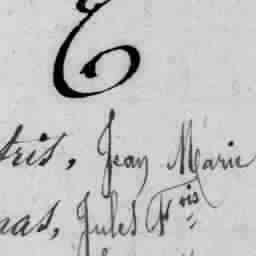 E
tris, Jean Marie
nas, Jules Fois